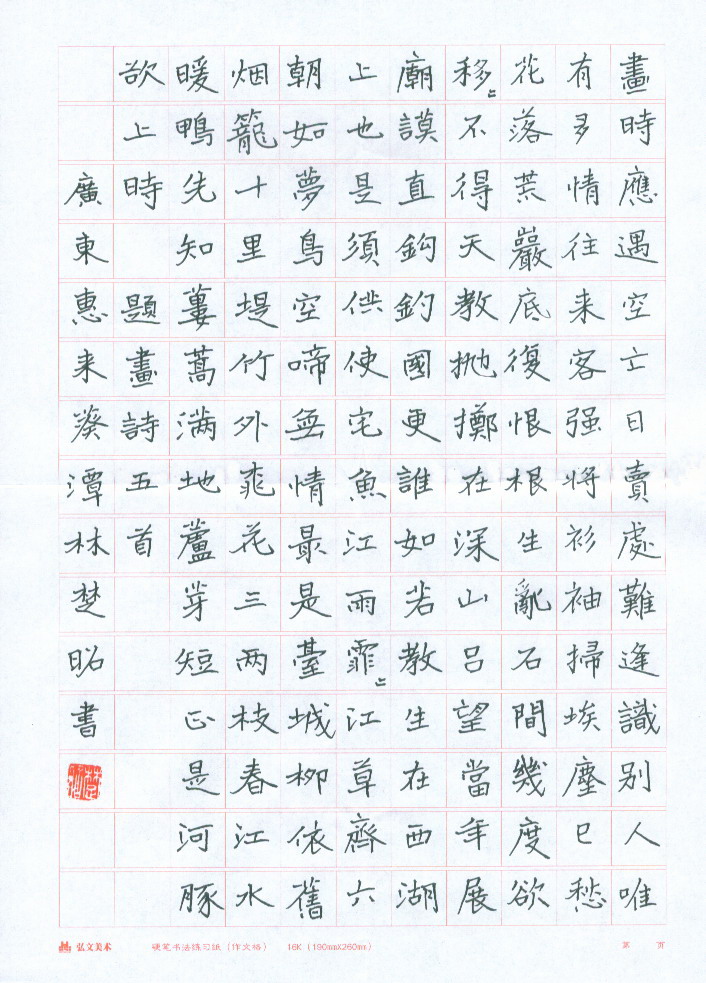 畫時應遇空亡日賣處難逢識别人唯
有多情往来客强将衫袖掃埃塵巳愁
花落荒巖底復恨根生亂石間幾度欲
移々不得天教抛擲在深山吕望當年展
廟謨直鈎釣國更誰如若教生在西湖
上也是須供使宅魚江雨霏々江草齊六
朝如夢鳥空啼無情最是臺城柳依舊
烟籠十里堤竹外桃花三两枝春江水
暖鴨先知蔞蒿满地蘆芽短正是河豚
欲上時 題畫詩五首
廣東惠来葵潭林楚昭書
弘文美术 硬笔书法练习纸（作文格） 16K（190mmX260mm） 第 页